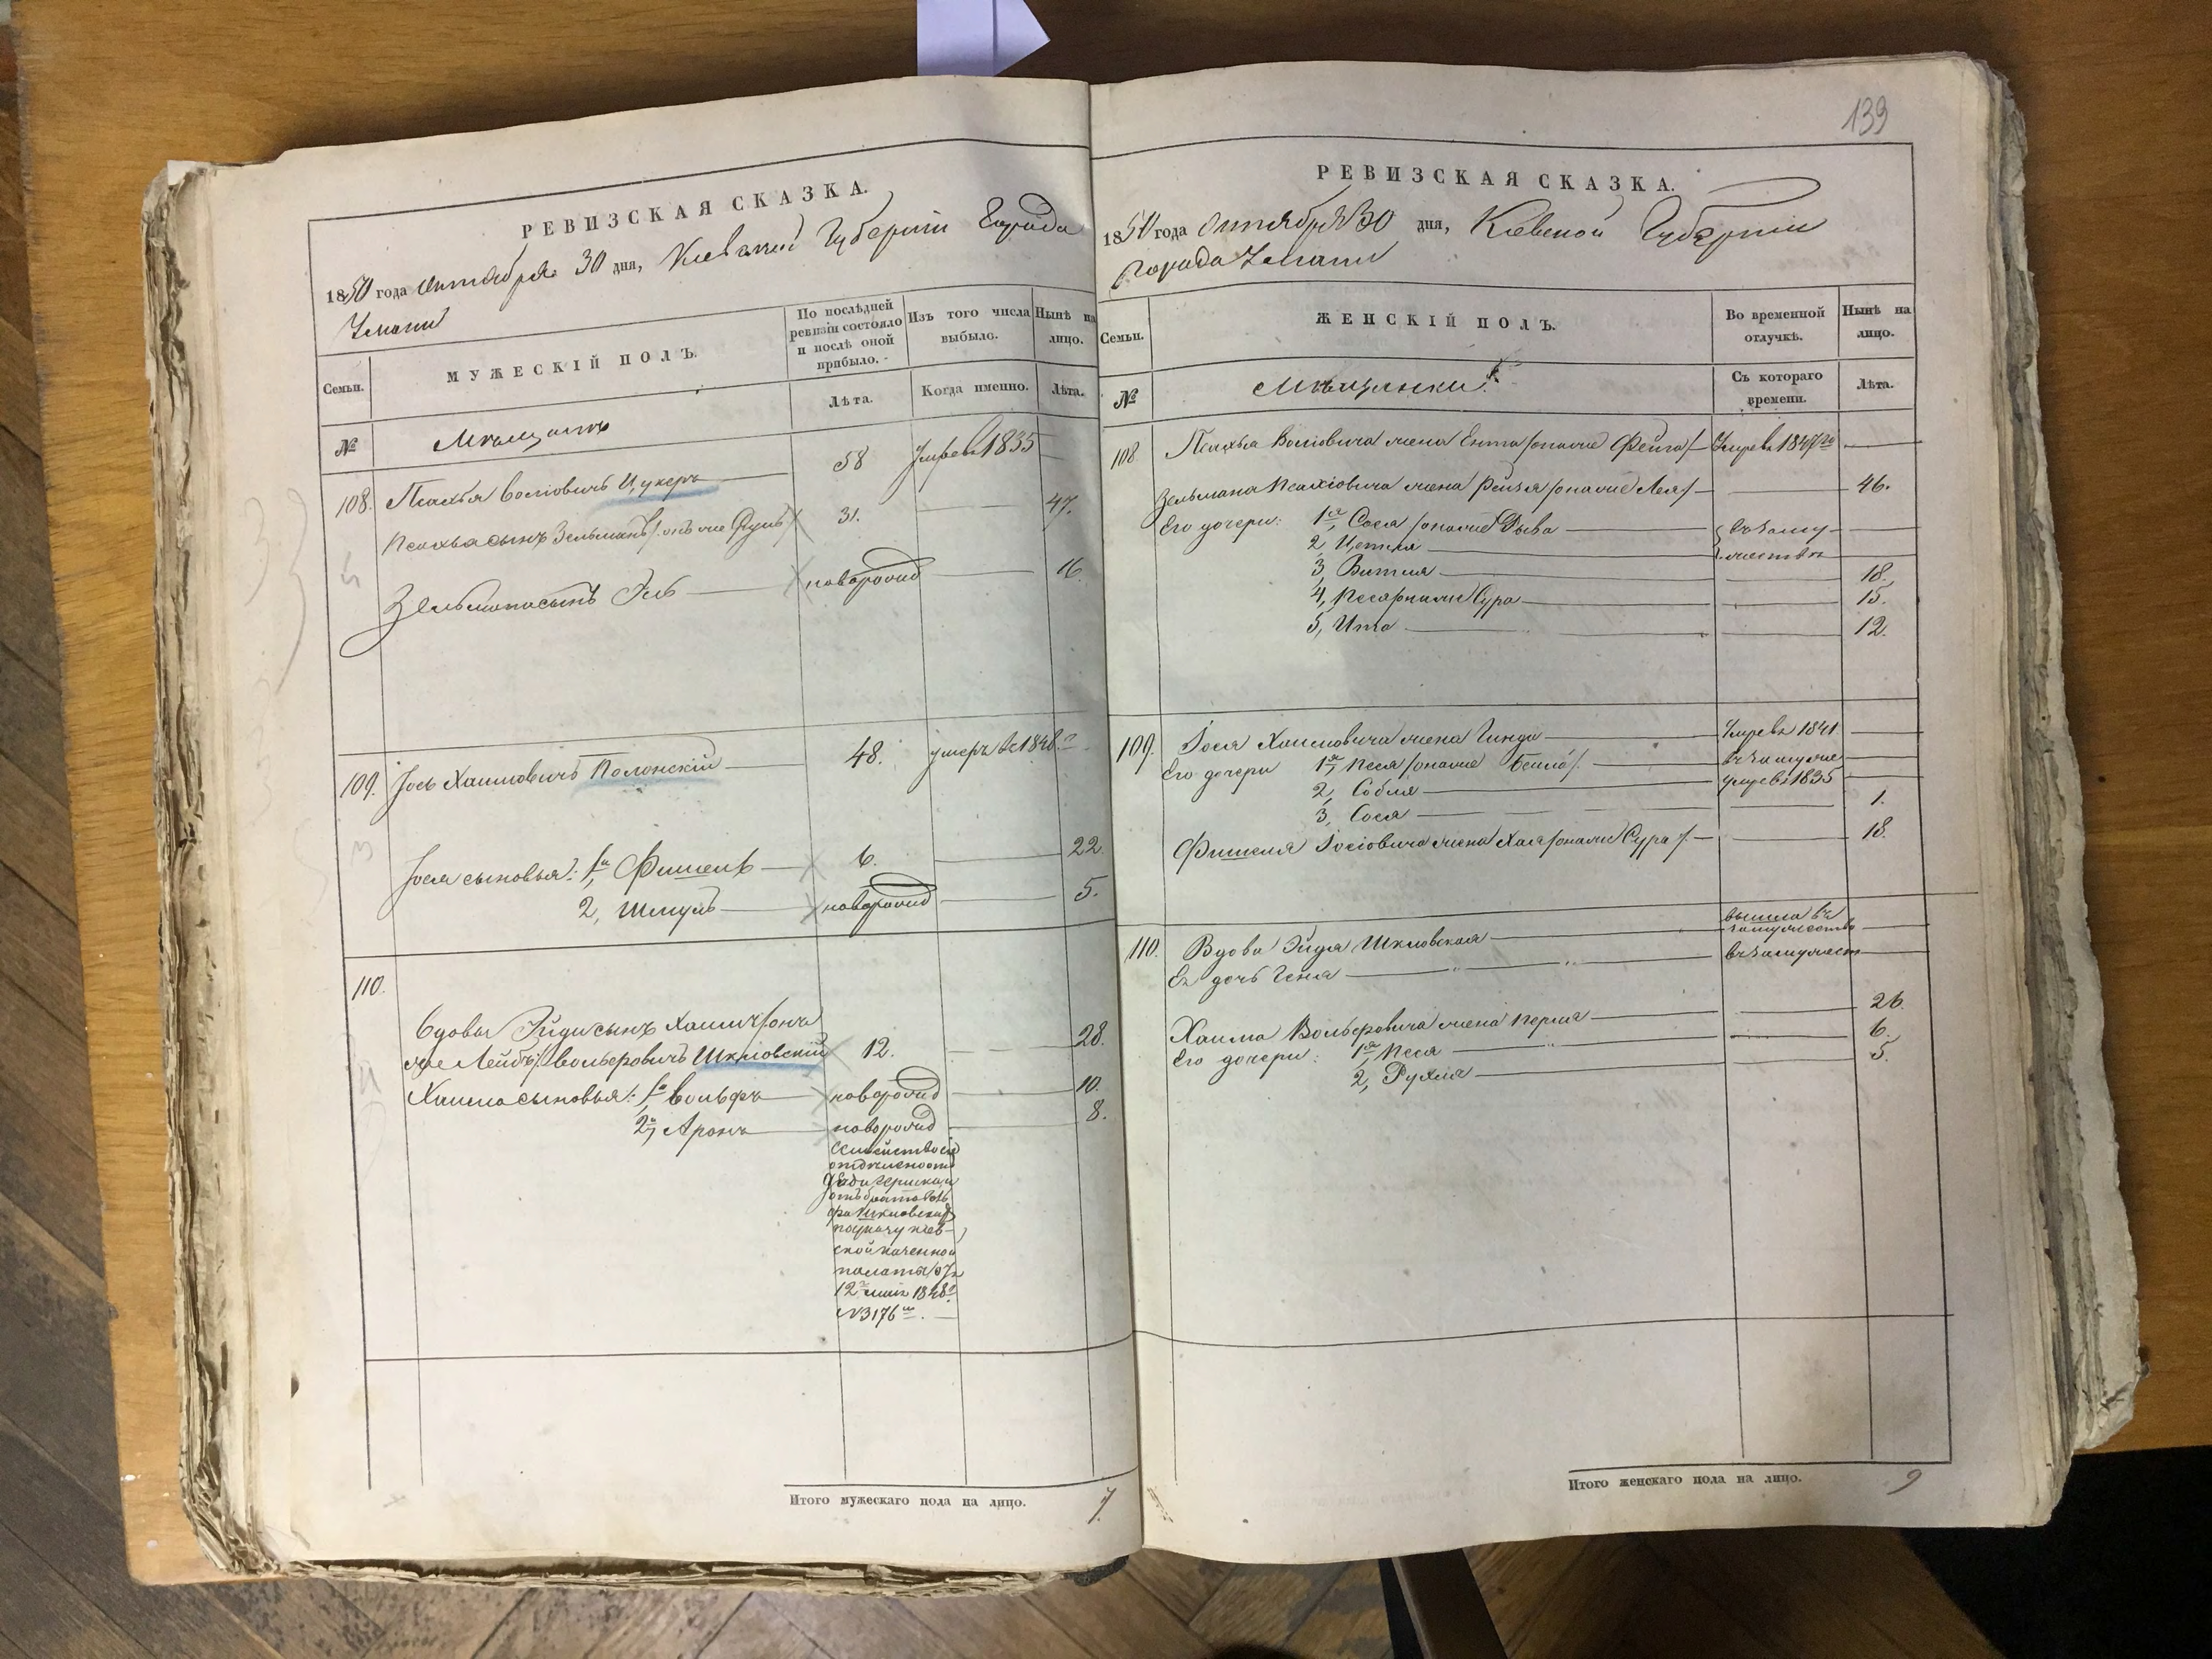 РЕВИЗСКАЯ СКАЗКА.
1850 года Октября 30 дня, Киевской Губернии Города
Умани
Семьи.
МУЖЕСКІЙ ПОЛЪ.
По послѣдней ревизіи состояло и послѣ оной прибыло.
Изъ того числа выбыло.
Нынѣ на лицо.
Лѣта.
Когда именно.
Лѣта.
№
Мѣщанъ
108. Псахья Волiовичъ Цукеръ 58 Умеръ 1835
Псахья сынъ Зельманъ 31. 47.
Зельмана сынъ новорожд 16.
109. Іось Хаимовичъ Полонскій 48. умеръ въ 1848 г
Іося сыновья: 1й Фишель 6. 22.
2, Шмуль новорожд 5.
110.
Вдовы Эйди сынъ Хаимъ /онъ
же Лейбъ/ Вольфовичъ Шкловскій 12. 28.
Хаима сыновья: 1й Вольфъ новорожд 10.
2й Аронъ новорожд 8.
Семейство сіе
отъ брата
Шкловскаго
по указу Кіев-
ской казенной
палаты отъ
12 1848 г
№ 3176
Итого мужескаго пола на лицо. 7
139
РЕВИЗСКАЯ СКАЗКА.
1850 года Октября 30 дня, Кіевской Губерніи
Города Умани
Семьи.
ЖЕНСКІЙ ПОЛЪ.
Во временной отлучкѣ.
Нынѣ на лицо.
№
Мѣщанки
Съ котораго времени.
Лѣта.
108 Псахья Воліовича жена Ента /она же Фейга/ Умерла 1847 го
Зельмана Псахіовича жена Рейзя /она же Лея/ 46.
Его дочери: 1я, Сося /она же Дыва въ заму-
2, Цетля жествѣ
3, Витля 18.
4, Песя /она же Сура 15.
5, Ита 12.
109. Іося Хаимовича жена Гинда Умерла 1841
Его дочери 1я, Песя /она же Бейла/. въ замуже
2, Собля умерла 1835
3, Сося 1.
Фишеля Іосіовича жена Хая /она же Сура/. 18.
110. Вдова Эйдя Шкловская вышла въ замужество
Ея дочь Геня въ замужест
Хаима Вольфовича жена Перля 26.
Его дочери: 1я Песя 6.
2, Рухля 5.
Итого женскаго пола на лицо. 9